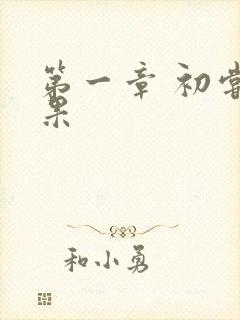 第一章 初尝
果
和小勇